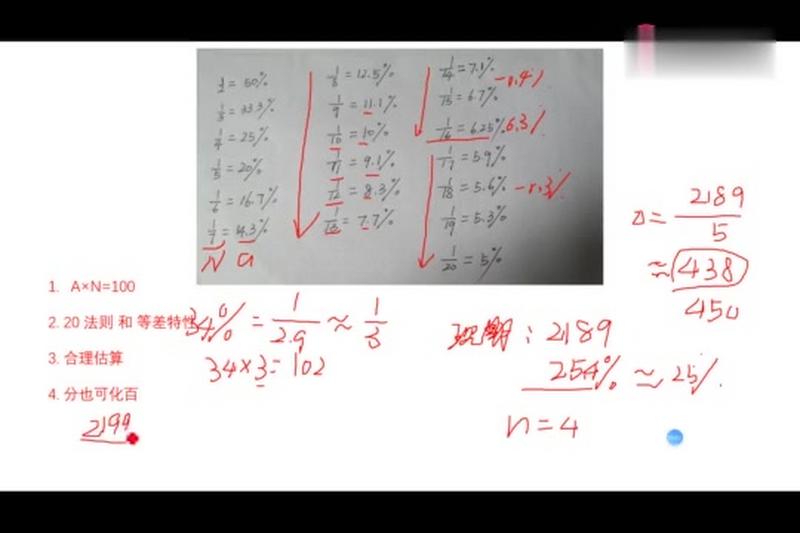 1/2 = 50%
1/3 = 33.3%
1/4 = 25%
1/5 = 20%
1/6 = 16.7%
1/7 = 14.3%
N a
1/8 = 12.5%
1/9 = 11.1%
1/10 = 10%
1/11 = 9.1%
1/12 = 8.3%
1/13 = 7.7%
1/14 = 7.1%
-0.4%
1/15 = 6.7%
1/16 = 6.25% 6.3%
1/17 = 5.9%
1/18 = 5.6% -0.3%
1/19 = 5.3%
1/20 = 5%
1. A×N=100
2. 20 法则 和 等差特性
3. 合理估算
4. 分也可化百
2199
34% = 1/2.9 ≈ 1/3
34×3=102
现期：2189
25.4% ≈ 25%
n=4
= 2189/5
≈ 438
450